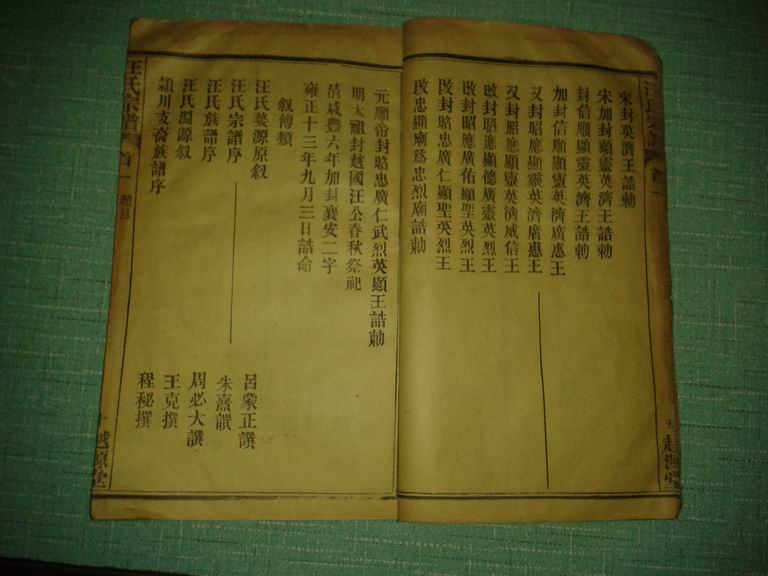 宋封英濟王誥勅
宋加封顯靈英濟王誥勅
封信順顯靈英濟王誥勅
加封信順顯靈英濟廣惠王
又封昭應顯靈英濟廣惠王
又封昭應顯靈英濟威信王
改封昭應顯德廣靈英烈王
改封昭應廣佑顯聖英烈王
改封昭忠廣仁顯聖英烈王
改忠顯廟爲忠烈廟誥勅
元順帝封昭忠廣仁武烈英顯王誥勅
明太祖封越國汪公春秋祭祀
清咸豐六年加封襄安二字
雍正十三年九月三日誥命
叙傳類
汪氏婺源原叙
呂蒙正譔
汪氏宗譜序
朱熹譔
汪氏族譜序
周必大譔
汪氏淵源叙
王克撰
潁川支裔族譜序
程秘撰
汪氏宗譜
首一
總目
越源堂